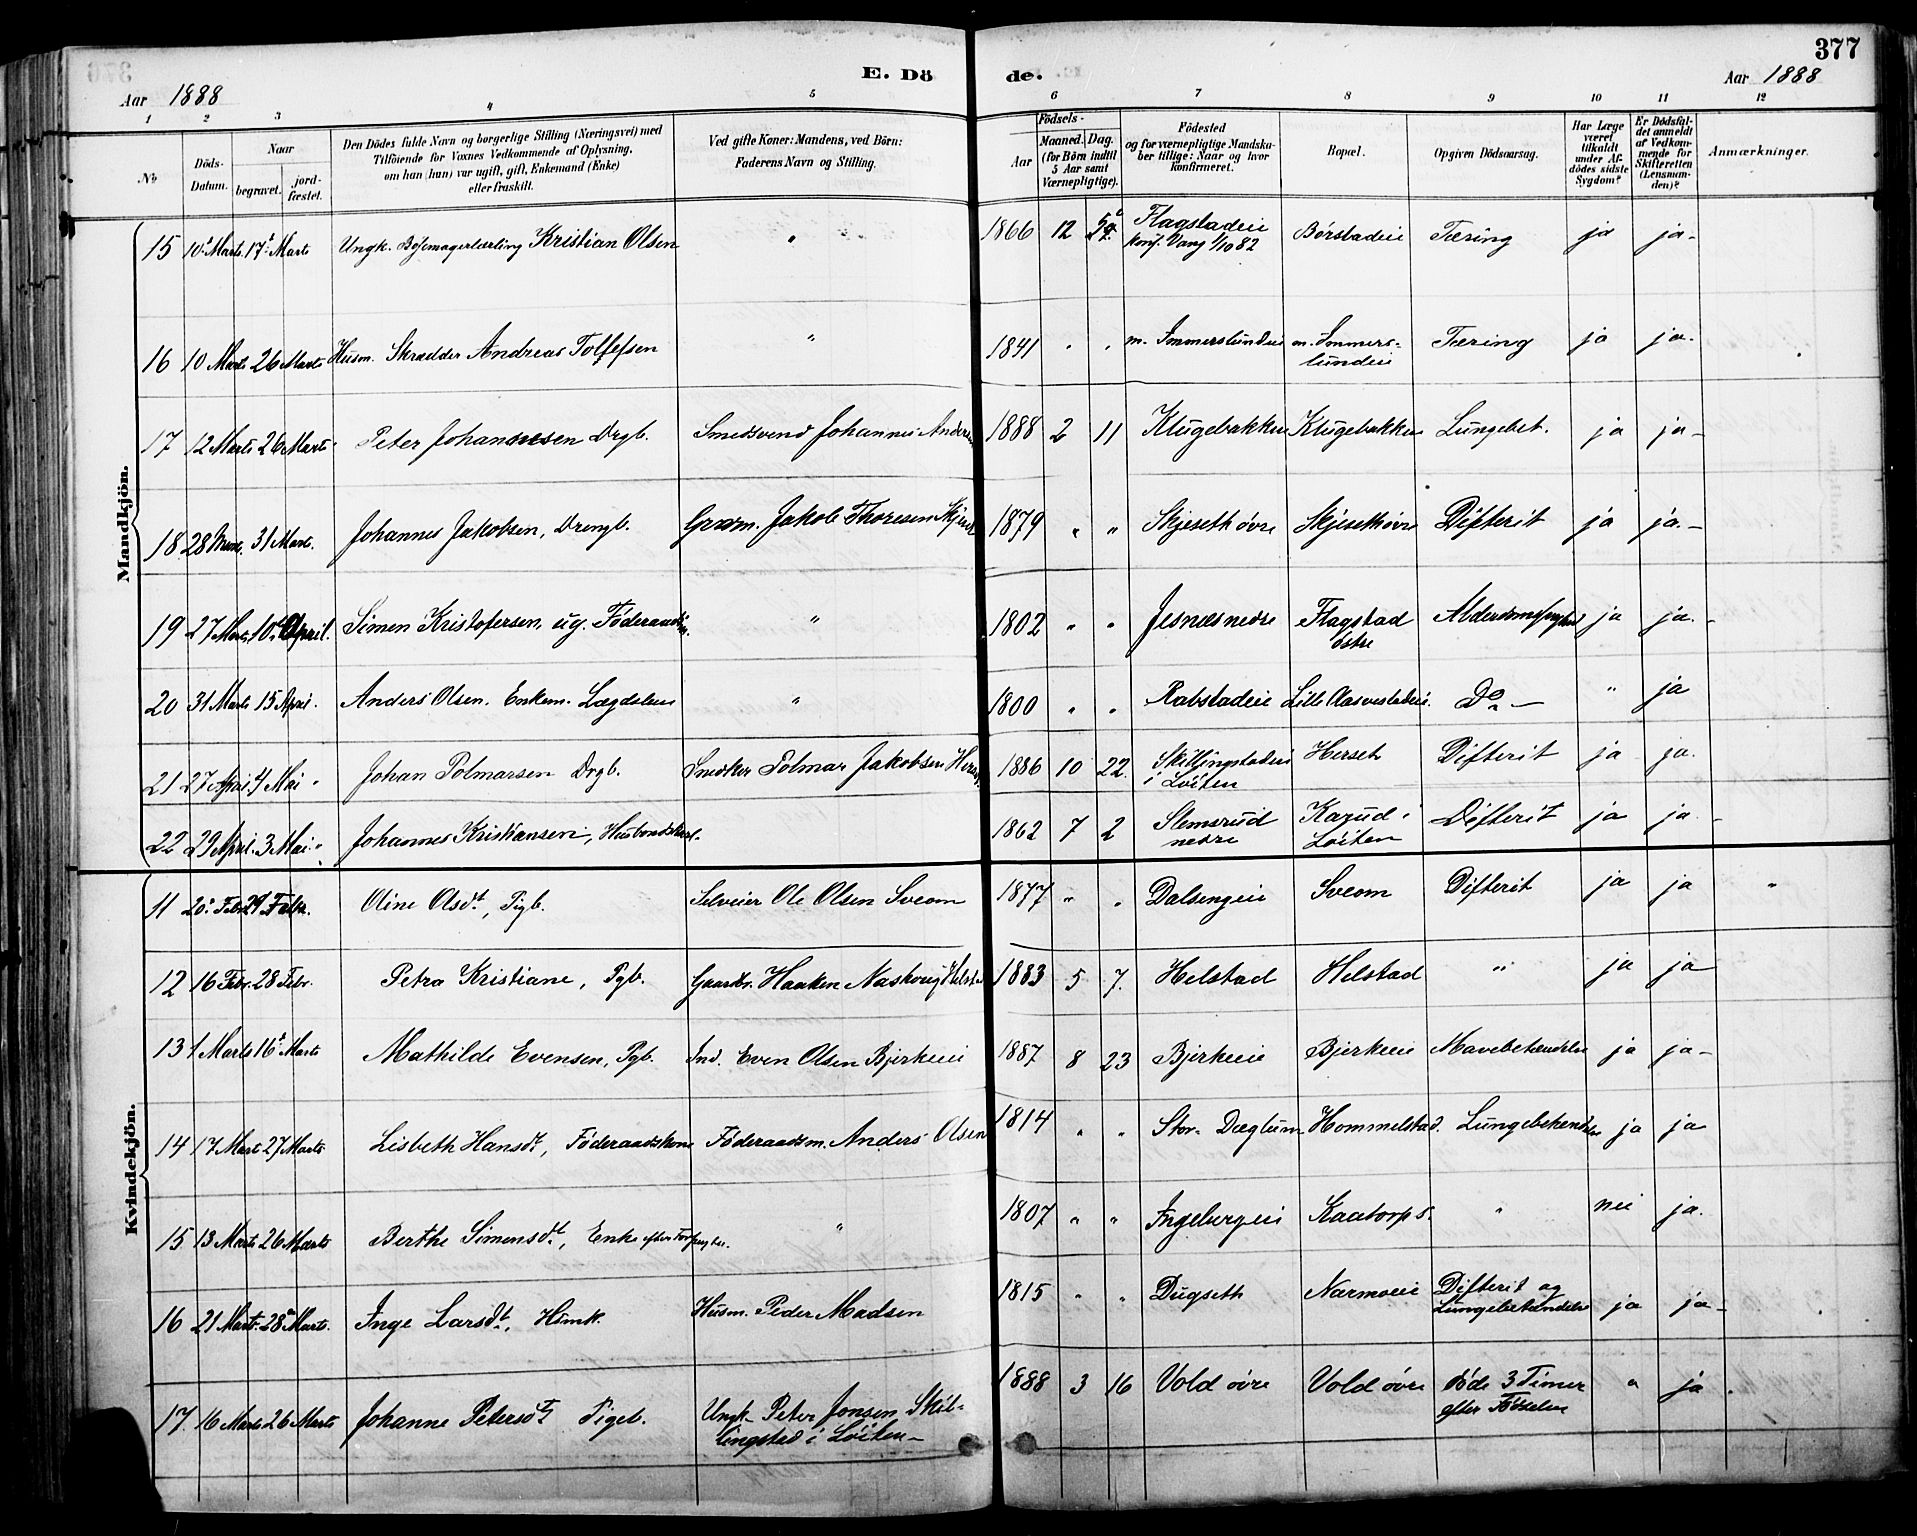 377
E. Dö de.
Aar 1888
Aar 1888
1 2 3 4 5 6 7 8 9 10 11 12
No
Döds-Datum.
Naar
begravet. jordfæstet.
Den Dödes fulde Navn og borgerlige Stilling (Næringsvei) med
Tilföiende for Voxnes Vedkommende af Oplysning,
om han (hun) var ugift, gift, Enkemand (Enke)
eller fraskilt.
Ved gifte Koner: Mandens, ved Börn:
Faderens Navn og Stilling.
Födsels-
Aar
Maaned. Dag.
(for Börn indtil
5 Aar samt
Værnepligtige).
Födested
og for værnepligtige Mandska-
ber tillige: Naar og hvor
konfirmeret.
Bopæl.
Opgiven Dödsaarsag.
Har Læge
været
tilkaldt
under Af-
dödes sidste
Sygdom?
Er Dödsfal-
det anmeldt
af Vedkom-
mende for
Skifteretten
(Lensman-
den)?
Anmærkninger.
Mandkjön.
15 10de Marts 17de Marts Ungk. Bösemagerlærling Kristian Olsen " 1866 12 Flagstadeie Börstadeie Tæring ja ja-
konf. Vang 1/10 82
16 10 Marts 26 Marts Husm. Skrædder Andreas Tolfefsen " 1841 " " m. Immerslundeie m. Immers- Tæring ja ja-
lundeie
17 12 Marts 26 Marts Peter Johannesen Drgb. Smedsvend Johannes Anders 1888 2 11 Klugebakken Klugebakken Lungebet. ja ja-
18 28 Marts. 31 Marts. Johannes Jakobsen, Drengb. Grdm. Jakob Thoresen Skjeset 1879 " " Skjeseth övre Skjeseth övre Difterit ja ja-
19 27 Marts 10de April. Simen Kristofersen, ug. Föderaadsm. " 1802 " " Jesnæs nedre Flagstad Alderdomssvaghed ja ja-
östre
20 31 Marts 15 April. Anders Olsen. Enkem. Lægdslem " 1800 " " Rabstadeie Lille Aasvestadeie. Do - " ja
21 27 April. 4 Mai " Johan Polmarsen Drgb. Snedker Polmar Jakobsen Herset 1886 10 22. Skillingstadeie Herset Difterit ja ja.
i Löiten
22 29 April. 3 Mai. " Johannes Kristiansen, Husbondskarl. 1862 7 2 Slemsrud Karud i Difterit ja ja-
nedre Löiten
Kvindekjön.
11 20de Febr. 29 Febr. Oline Olsdt, Pigb. Selveier Ole Olsen Sveom 1877 " " Dalsengeie Sveom Difterit ja ja "
12 16 Febr. 28 Febr. Petra Kristiane, Pgb. Gaardbr. Haaken Naskvig Helstad 1883 5 7. Helstad Helstad " ja ja
13 1 Marts 16de Marts Mathilde Evensen, Pgb. Ind. Even Olsen Bjerkeeie 1887 8 23 Bjerkeeie Bjerkeeie Mavebetændelse ja ja-
14 17 Marts 27 Marts Lisbeth Hansdt, Föderaadskone Föderaadsm. Anders Olsen 1814 " " Stor-Dæglum Hommelstad. Lungebetendelse ja ja
15 13 Marts 26 Marts Berthe Simensdt, Enke efter Forpagter. " 1807 " " Ingebergeie Kaatorps. " nei ja.
16 21 Marts 28de Marts. Inge Larsdt, Hsmk. Husm. Peder Madsen 1815 " " Dugseth Narmoeie Difterit og ja ja-
Lungebetændelse
17. 16 Marts 26 Marts Johanne Petersdt Pigeb. Ungk. Peter Jonsen Skil- 1888 3 16 Vold övre Vold övre Döde 3 Timer " ja.
lingstad i Löiten- efter Födselen